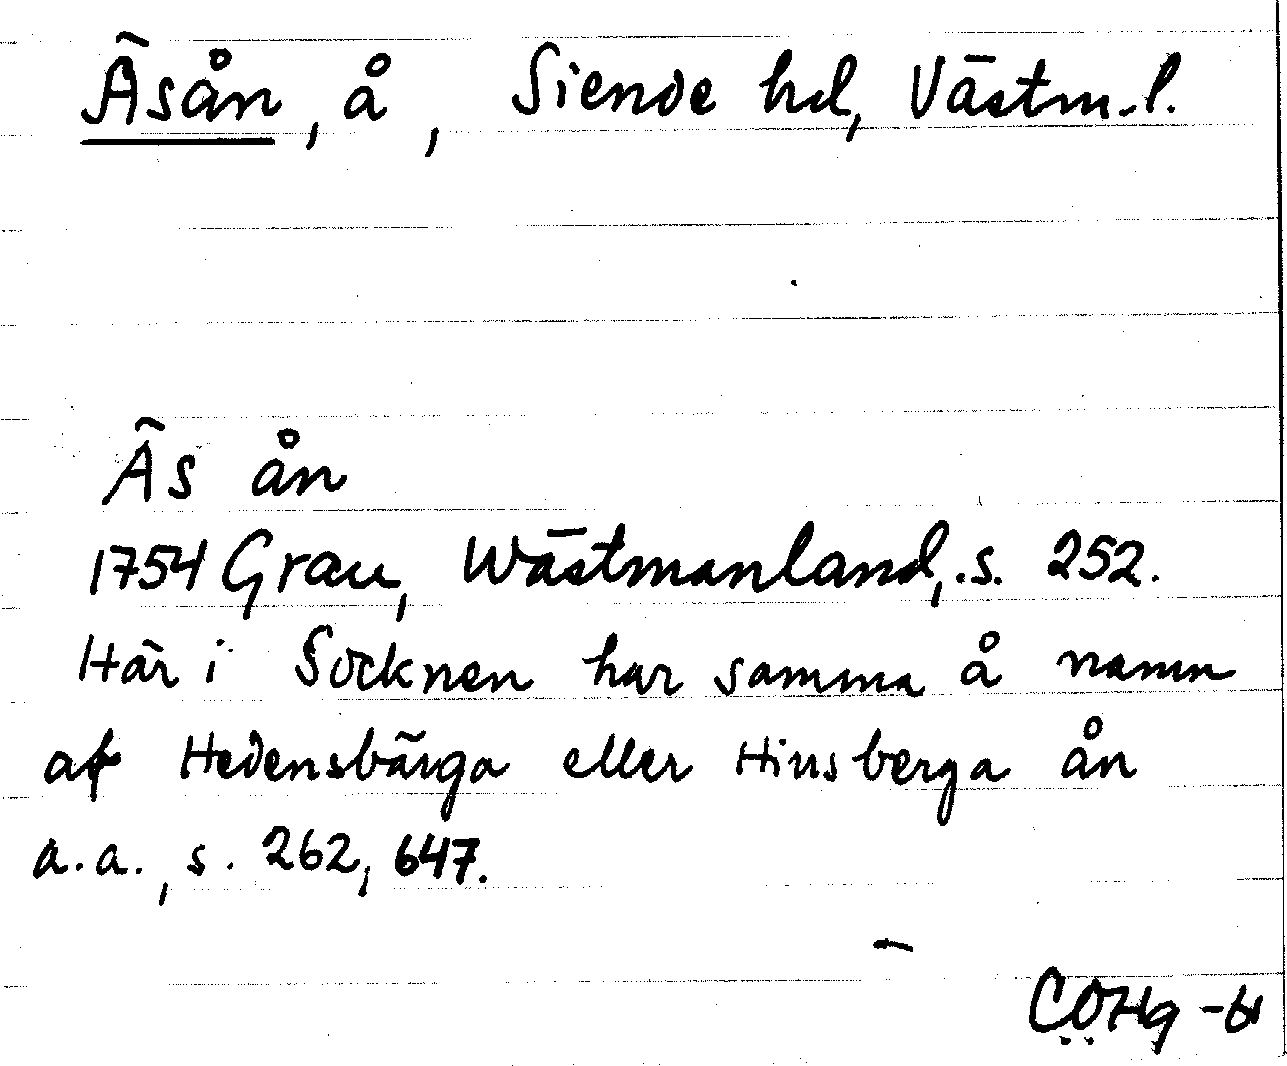 Äsån, å, Siende hd, Västm. l.
Äs ån
1754 Grau, Wästmanland, s. 252.
Här i Socknen har samma å namn
af Hedensbärga eller Hinsberga ån
a.a., s. 262, 647.
CÖHg -61